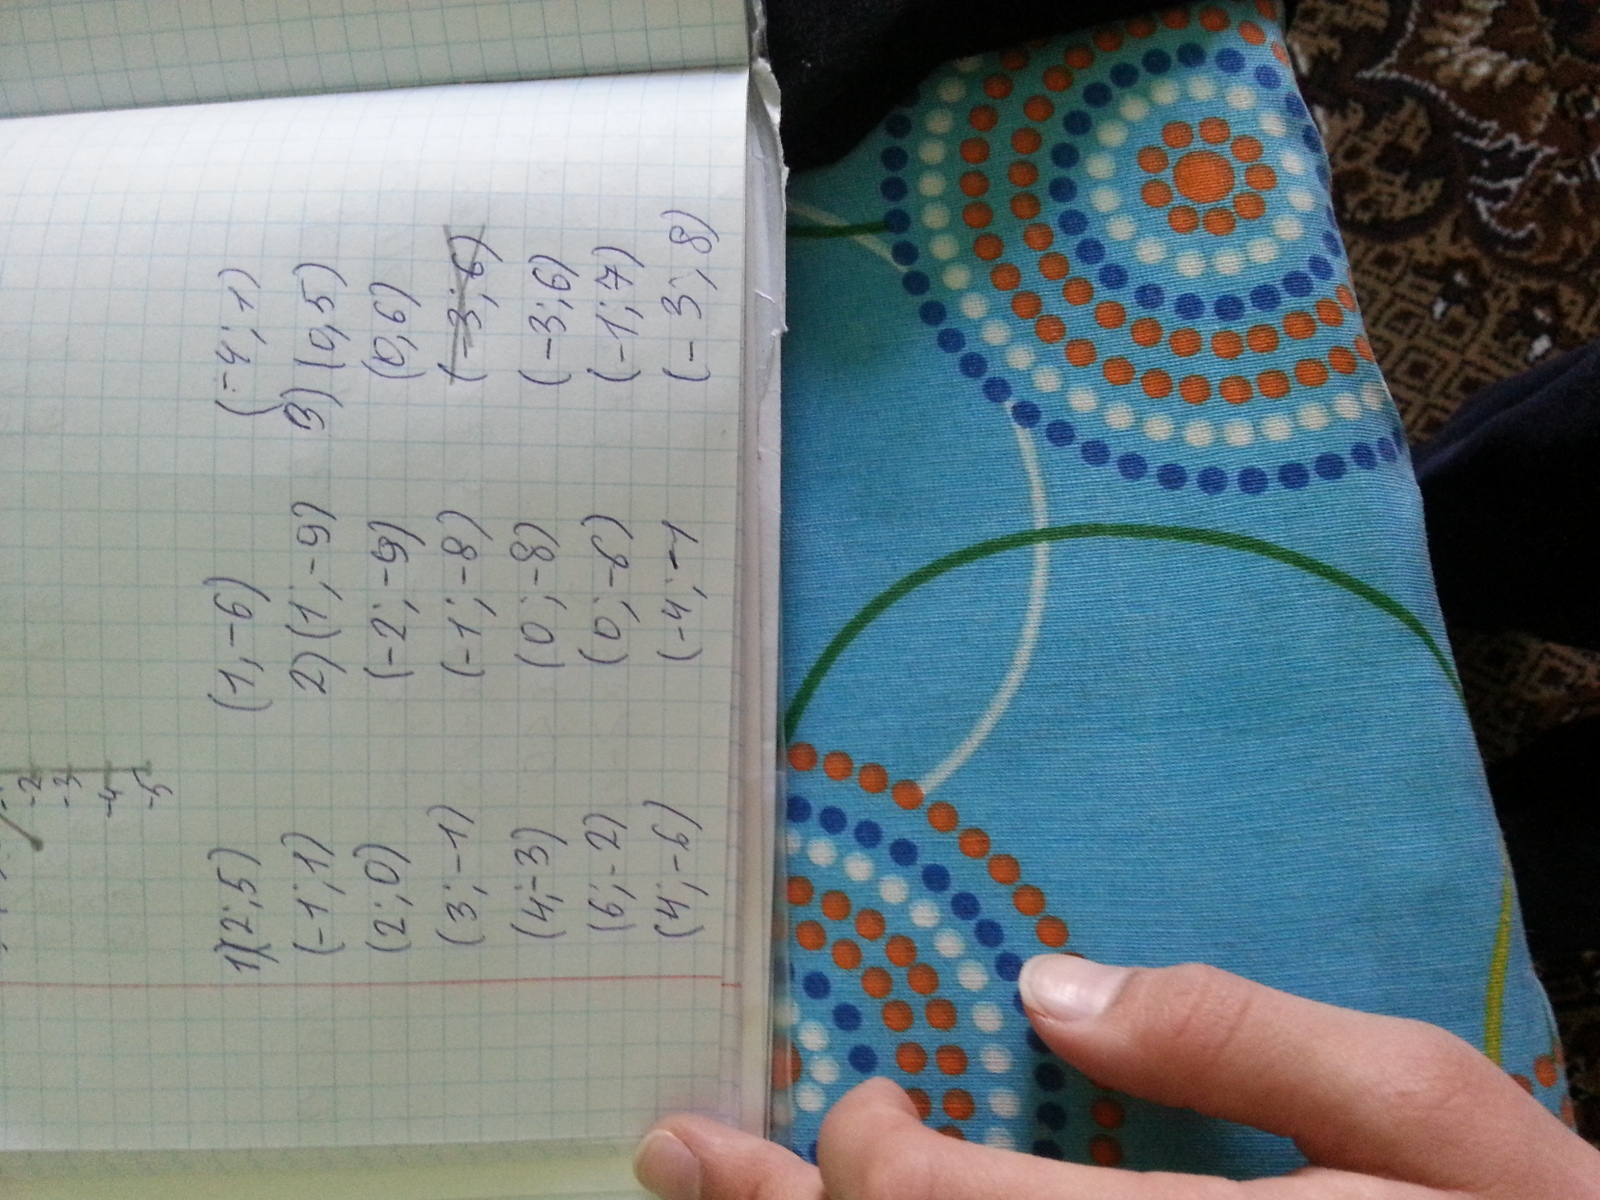 -2
-3
-4
-5
1)(2;5)
(-1;1)
(2;0)
(3;-1)
(4;-3)
(6;-2)
(4;-6)
(1,-6)
2)(1;-9)
(-2;-9)
(-1;-8)
(0;-8)
(0;-6)
(-4;-1
(-4;1)
3)(0,5)
(0,6)
(-3;6)
(-3;6)
(-1;7)
(-3;8)